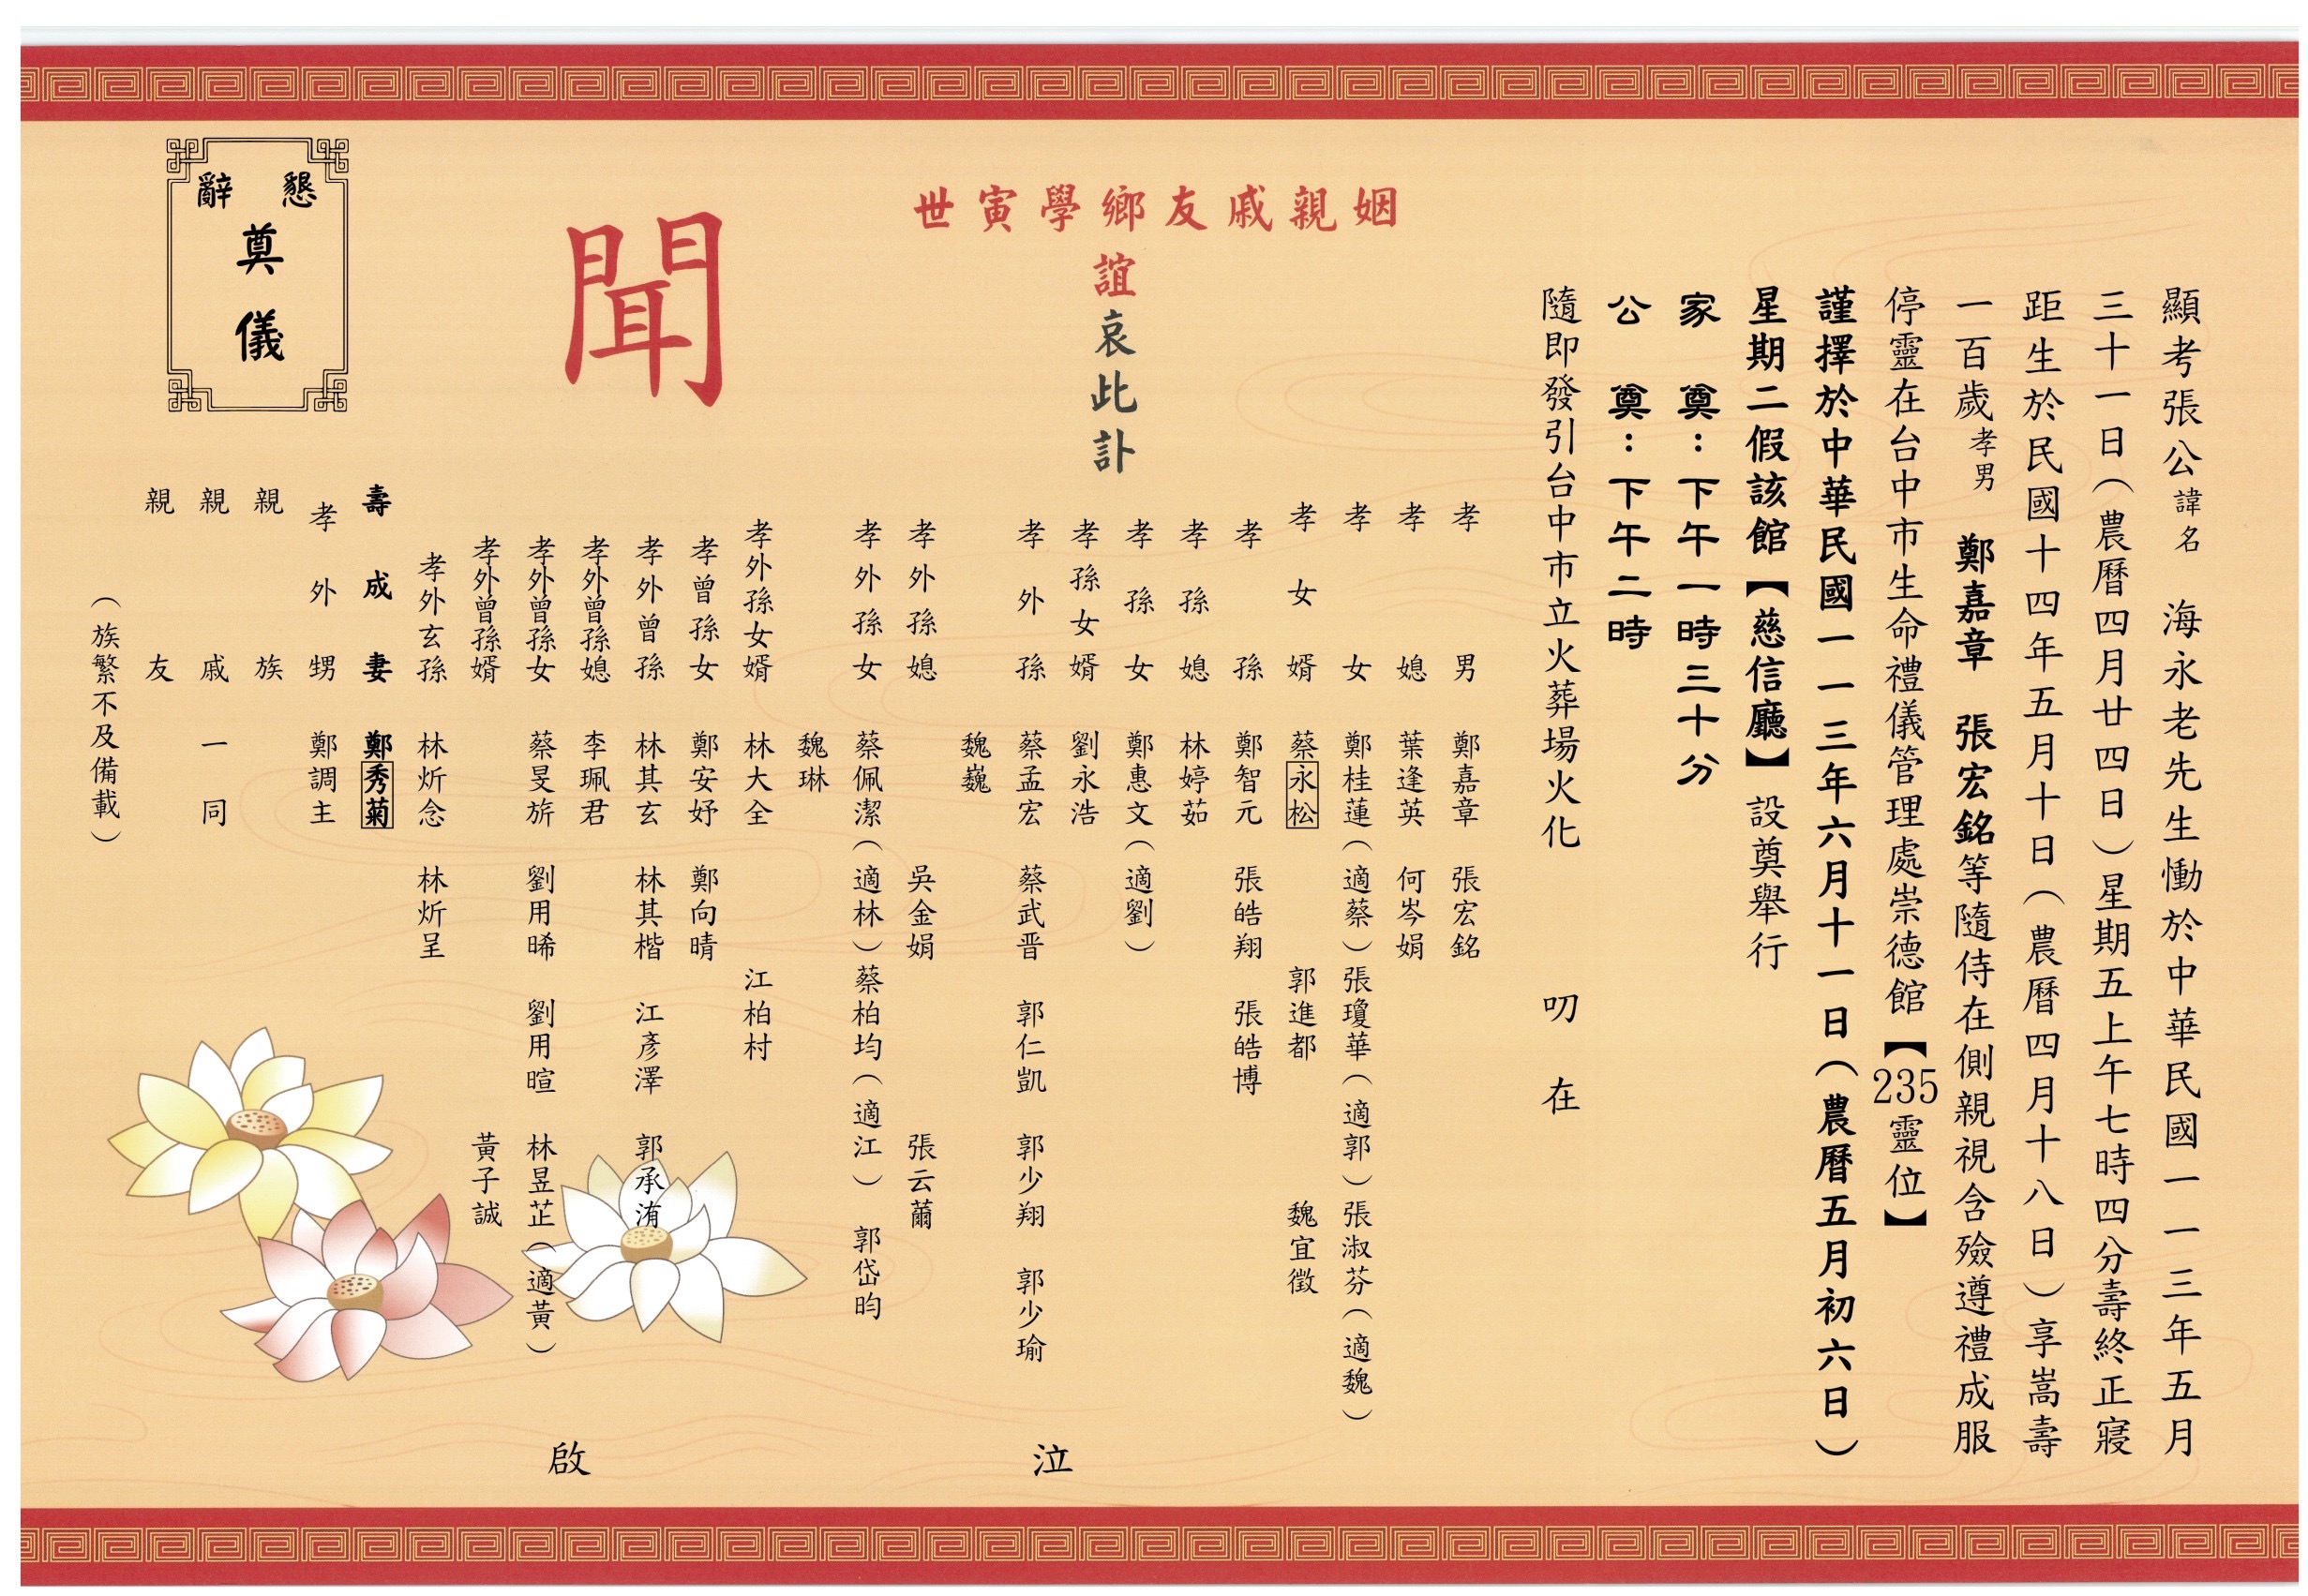 顯考張公諱名　海永老先生慟於中華民國一一三年五月
三十一日（農曆四月廿四日）星期五上午七時四分壽終正寢
距生於民國十四年五月十日（農曆四月十八日）享嵩壽
一百歲孝男　鄭嘉章　張宏銘等隨侍在側親視含殮遵禮成服
停靈在台中市生命禮儀管理處崇德館【235靈位】
謹擇於中華民國一一三年六月十一日（農曆五月初六日）
星期二假該館【慈信廳】設奠舉行
家　奠：下午一時三十分
公　奠：下午二時
隨即發引台中市立火葬場火化　叨在
姻親戚友鄉學寅世
誼哀此訃
聞
孝男　鄭嘉章　張宏銘
孝媳　葉逢英　何岑娟
孝女　鄭桂蓮（適蔡）張瓊華（適郭）張淑芬（適魏）
孝女婿　蔡永松　郭進都　魏宜徵
孝孫　鄭智元　張皓翔　張皓博
孝孫媳　林婷茹
孝孫女　鄭惠文（適劉）
孝孫女婿　劉永浩
孝外孫　蔡孟宏　蔡武晋　郭仁凱　郭少翔　郭少瑜
魏巍
孝外孫媳　吳金娟　張云薾
孝外孫女　蔡佩潔（適林）蔡柏均（適江）郭岱昀
魏琳
孝外孫女婿　林大全　江柏村
孝曾孫女　鄭安妤　鄭向晴
孝外曾孫　林其玄　林其楷　江彥澤　郭承洧
孝外曾孫媳　李珮君
孝外曾孫女　蔡旻旂　劉用晞　劉用暄　林昱芷（適黃）
孝外曾孫婿　黃子誠
孝外玄孫　林炘念　林炘呈
壽成妻　鄭秀菊
孝外甥　鄭調主
親族
親戚一同
親友
（族繁不及備載）
泣
啟
懇辭
奠儀